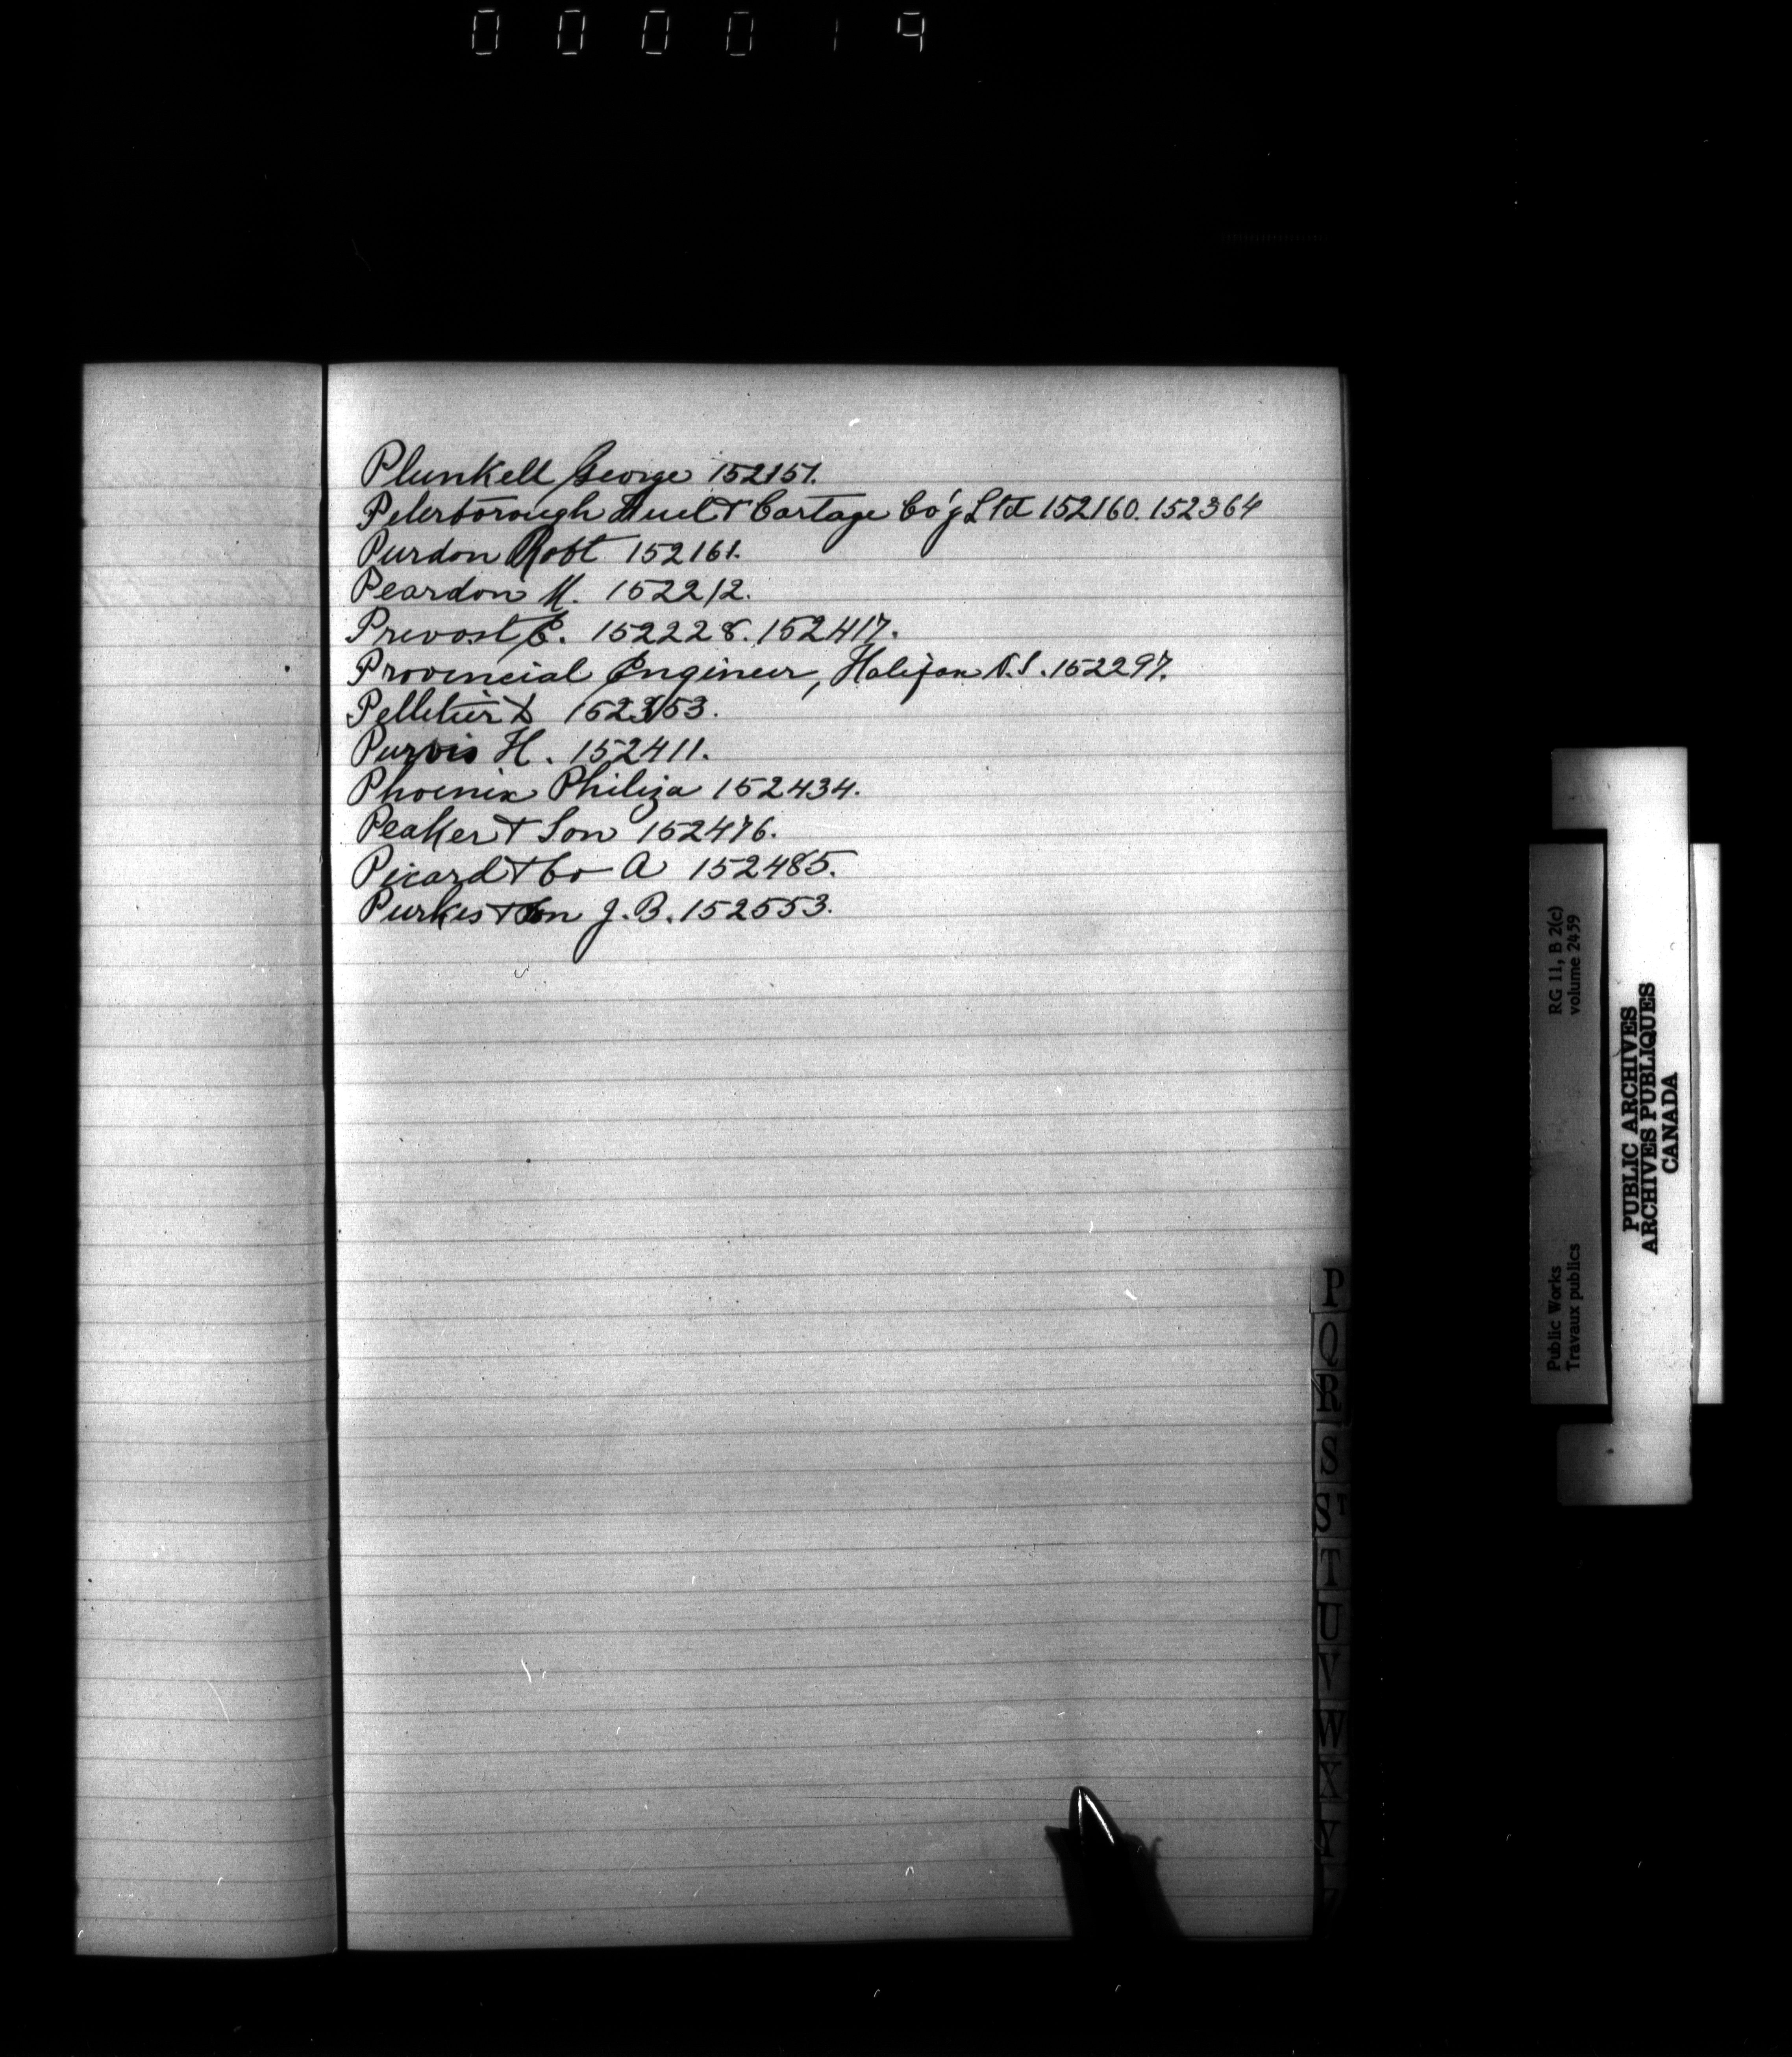 000019
Plunkett George 152151.
Peterborough Fuel & Cartage Co'y Ltd 152160. 152364
Purdon Robt 152161.
Peardon M. 152212.
Prevost E. 152228. 152417.
Provincial Engineer, Halifax N.S. 152297.
Pelletier D 152353.
Purvis H. 152411.
Phoenix Philiza 152434.
Peaker & Son 152476.
Picard & Co A 152485.
Purkis & Son J.B. 152553.
P
Q
R
S
ST
T
U
V
W
X
Y
Z
Public Works
Travaux publics
RG 11, B 2(c)
volume 2459
PUBLIC ARCHIVES
ARCHIVES PUBLIQUES
CANADA